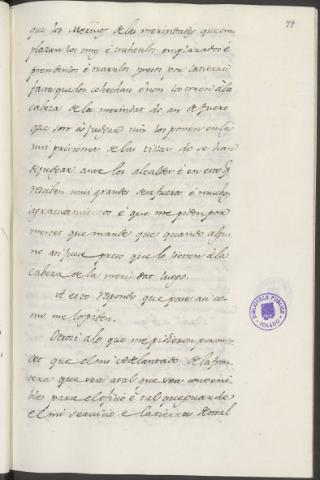 79
que los Merinos de las merindades que em
plazan los omes é trahenlos emplazados é
prendenlos é trahenlos presos por la tierra
fasta que los cohechan é non los traen á la
cabeza de la merindat do an de fuero
que son á juzgar nin los ponen en las
mis prisiones de las villas do se han
de judgar ante los alcaldes é en esto
reciben muy grandes desafueros é muchos
agraviamientos é que me piden por
merced que mande que quando algu
no ansi fuere preso que lo lieven á la
cabeza de la merindat luego.
A esto respondo que pase asi co
mo me lo piden.
Otrosi á lo que me pidieron por mer
cet que el mi adelantado de la fron
tera que sea atal que sea conveni
ble para el oficio é tal que guarde
el mi servicio é la tierra de mal
BIBLIOTECA PUBLICA
TOLEDO